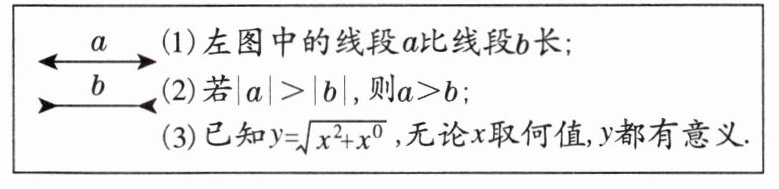 a (1)左图中的线段a比线段b长;
b (2)若|a|>|b|,则a>b;
(3)已知y=√x²+x⁰,无论x取何值,y都有意义.